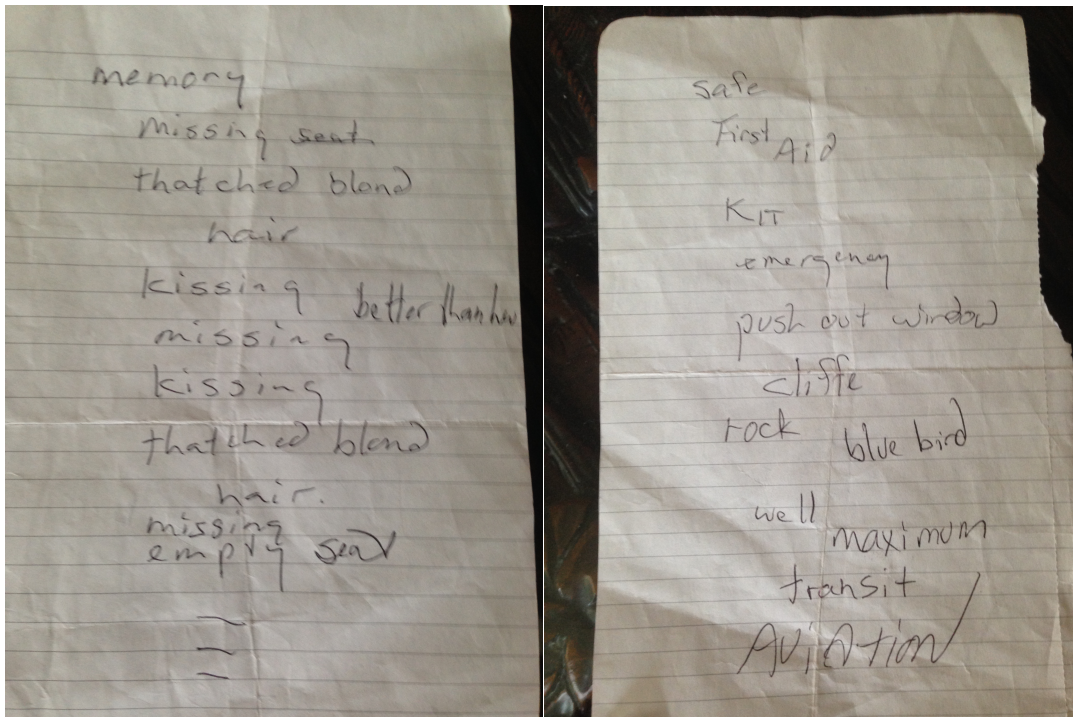 memory
missing seat
thatched blond
hair
kissing
better than
missing
kissing
thatched blond
hair.
missing
empty seat
safe
First Aid
KIT
emergency
push out window
cliffe
rock
blue bird
well
maximum
transit
Aviation